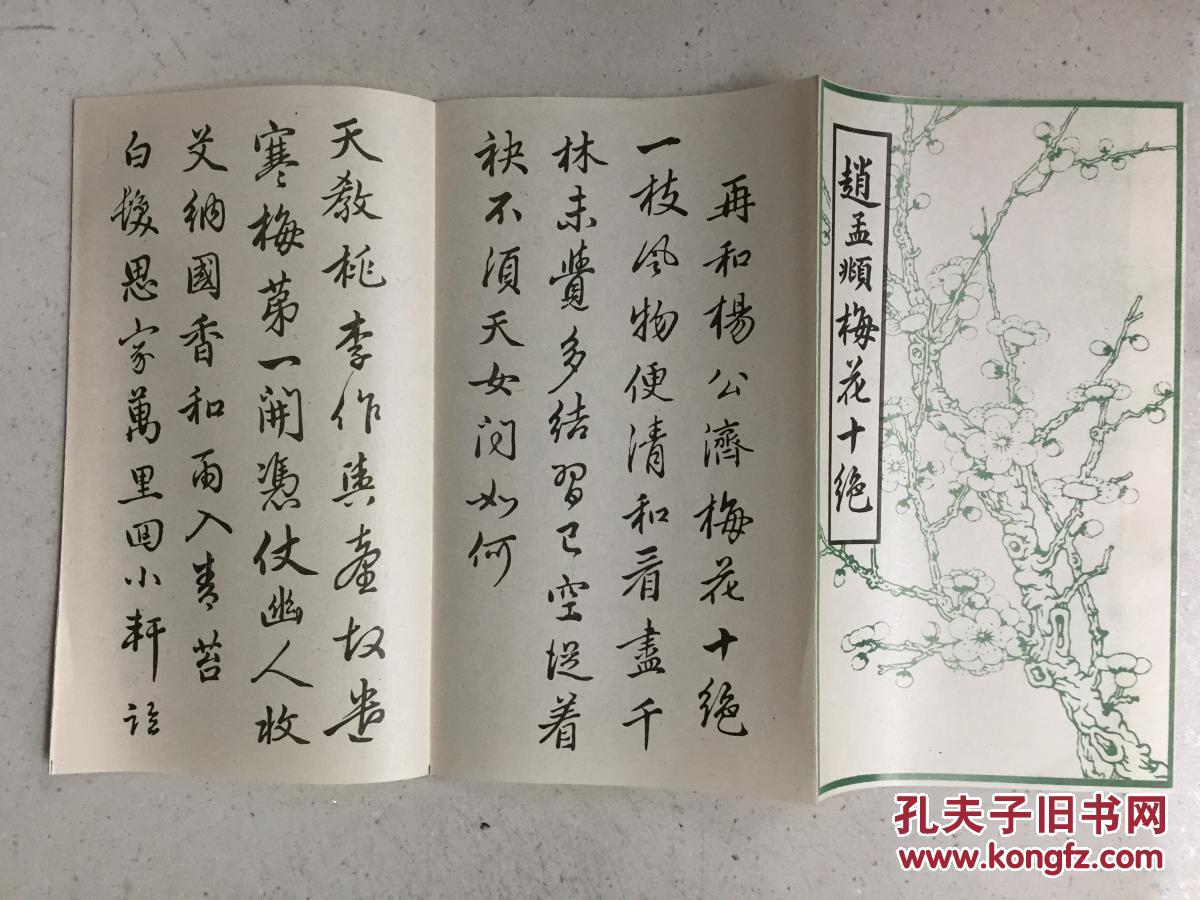 趙孟頫梅花十絶
再和楊公濟梅花十絶
一枝風物便清和看盡千
林未覺多結習已空從着
袂不須天女問如何
天教桃李作輿臺故遣
寒梅第一開憑仗幽人收
艾納國香和雨入青苔
白髮思家萬里回小軒
孔夫子旧书网
www.kongfz.com